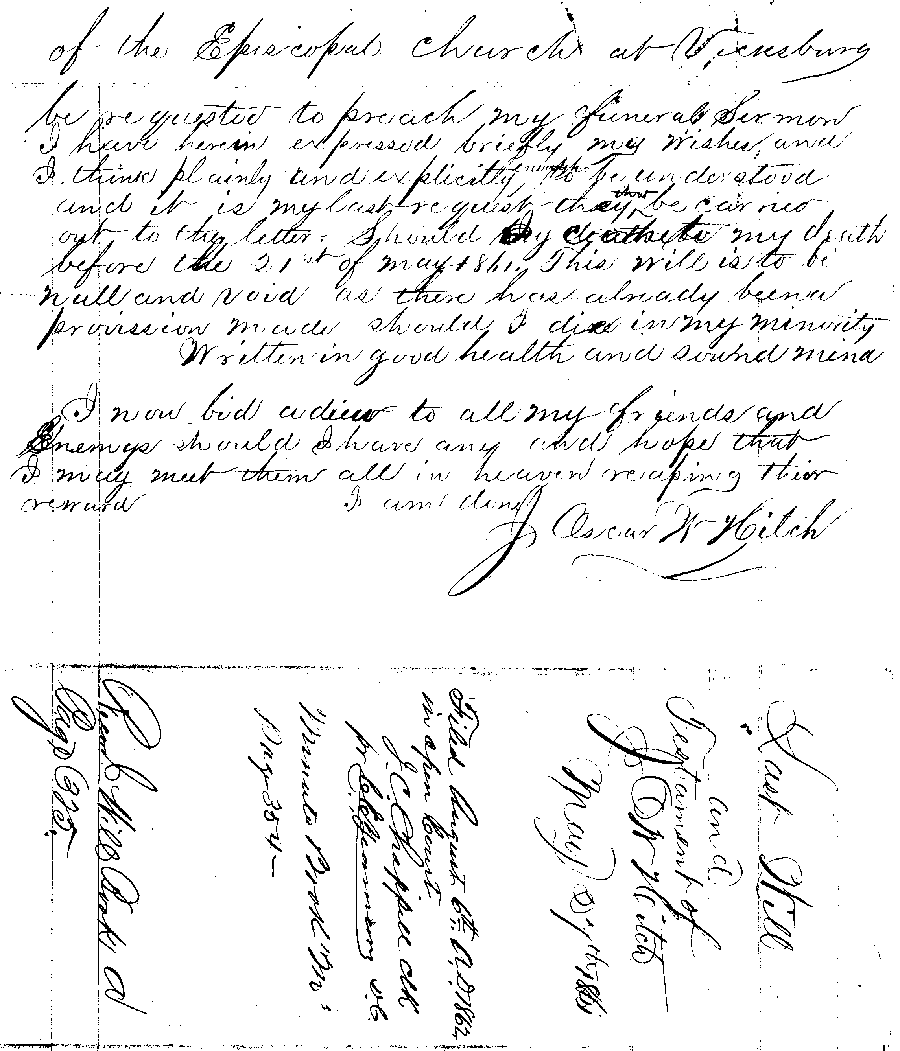 of the Episcopal church at Vicksburg
be requested to preach my funeral Sermon
I have herein expressed briefly my wishes, and
I think plainly and explicitly enough to be understood
and it is my last request that they be carried
out to the letter. Should my death
before the 21st of may 1861, This will is to be
null and void as there has already been a
provission made should I die in my minority
Written in good health and sound mind
I now bid adieu to all my friends and
Enemys should I have any and hope that
I may meet them all in heaven reaping thier
reward I am done
J Oscar W Hitch
Last Will
and
Testament of
J O W Hitch
May 1861
Filed August 6th A.D. 1862
in open Court
J. C. Chappell Clk
by D.C
Minute Book M
Page 354
Record Will Book A
Page 325.